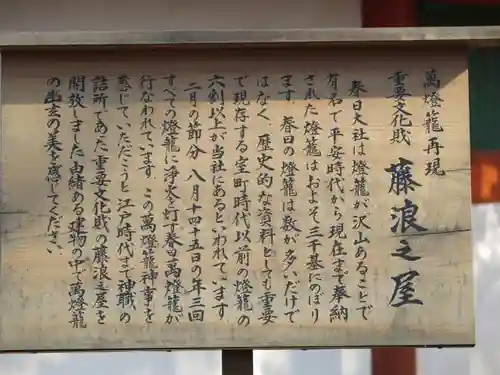 萬燈籠再現
重要文化財 藤浪之屋
春日大社は燈籠が沢山あることで
有名で平安時代から現在まで奉納
された燈籠はおよそ三千基にのぼり
ます。春日の燈籠は数が多いだけで
はなく、歴史的な資料としても重要
で現存する室町時代以前の燈籠の
六割以上が当社にあるといわれてゐます
二月の節分 八月十四十五日の年三回
すべての燈籠に浄火を灯す春日萬燈籠が
行なわれています。この萬燈籠神事を
感じていただこうと江戸時代まで神職の
詰所であった重要文化財の藤浪之屋を
開放しました 由緒ある建物の中で萬燈籠
の幽玄の美を感してください。